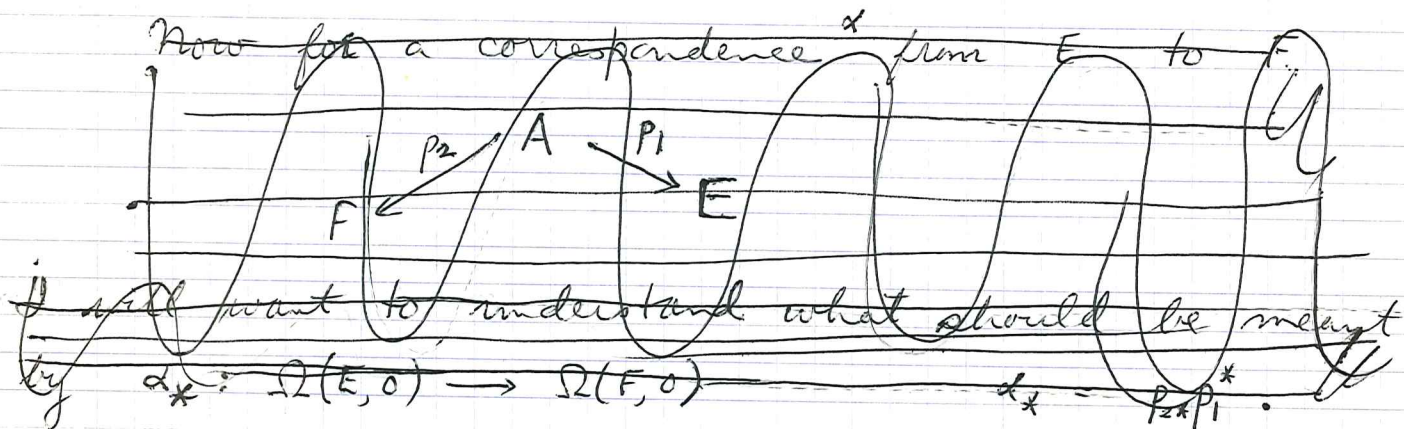 Now for a correspondence α from E to F.
A
p₂ p₁
F E
I will want to understand what should be meant
by α_* : Ω(E,0) → Ω(F,0) α_* = p₂* p₁^* .